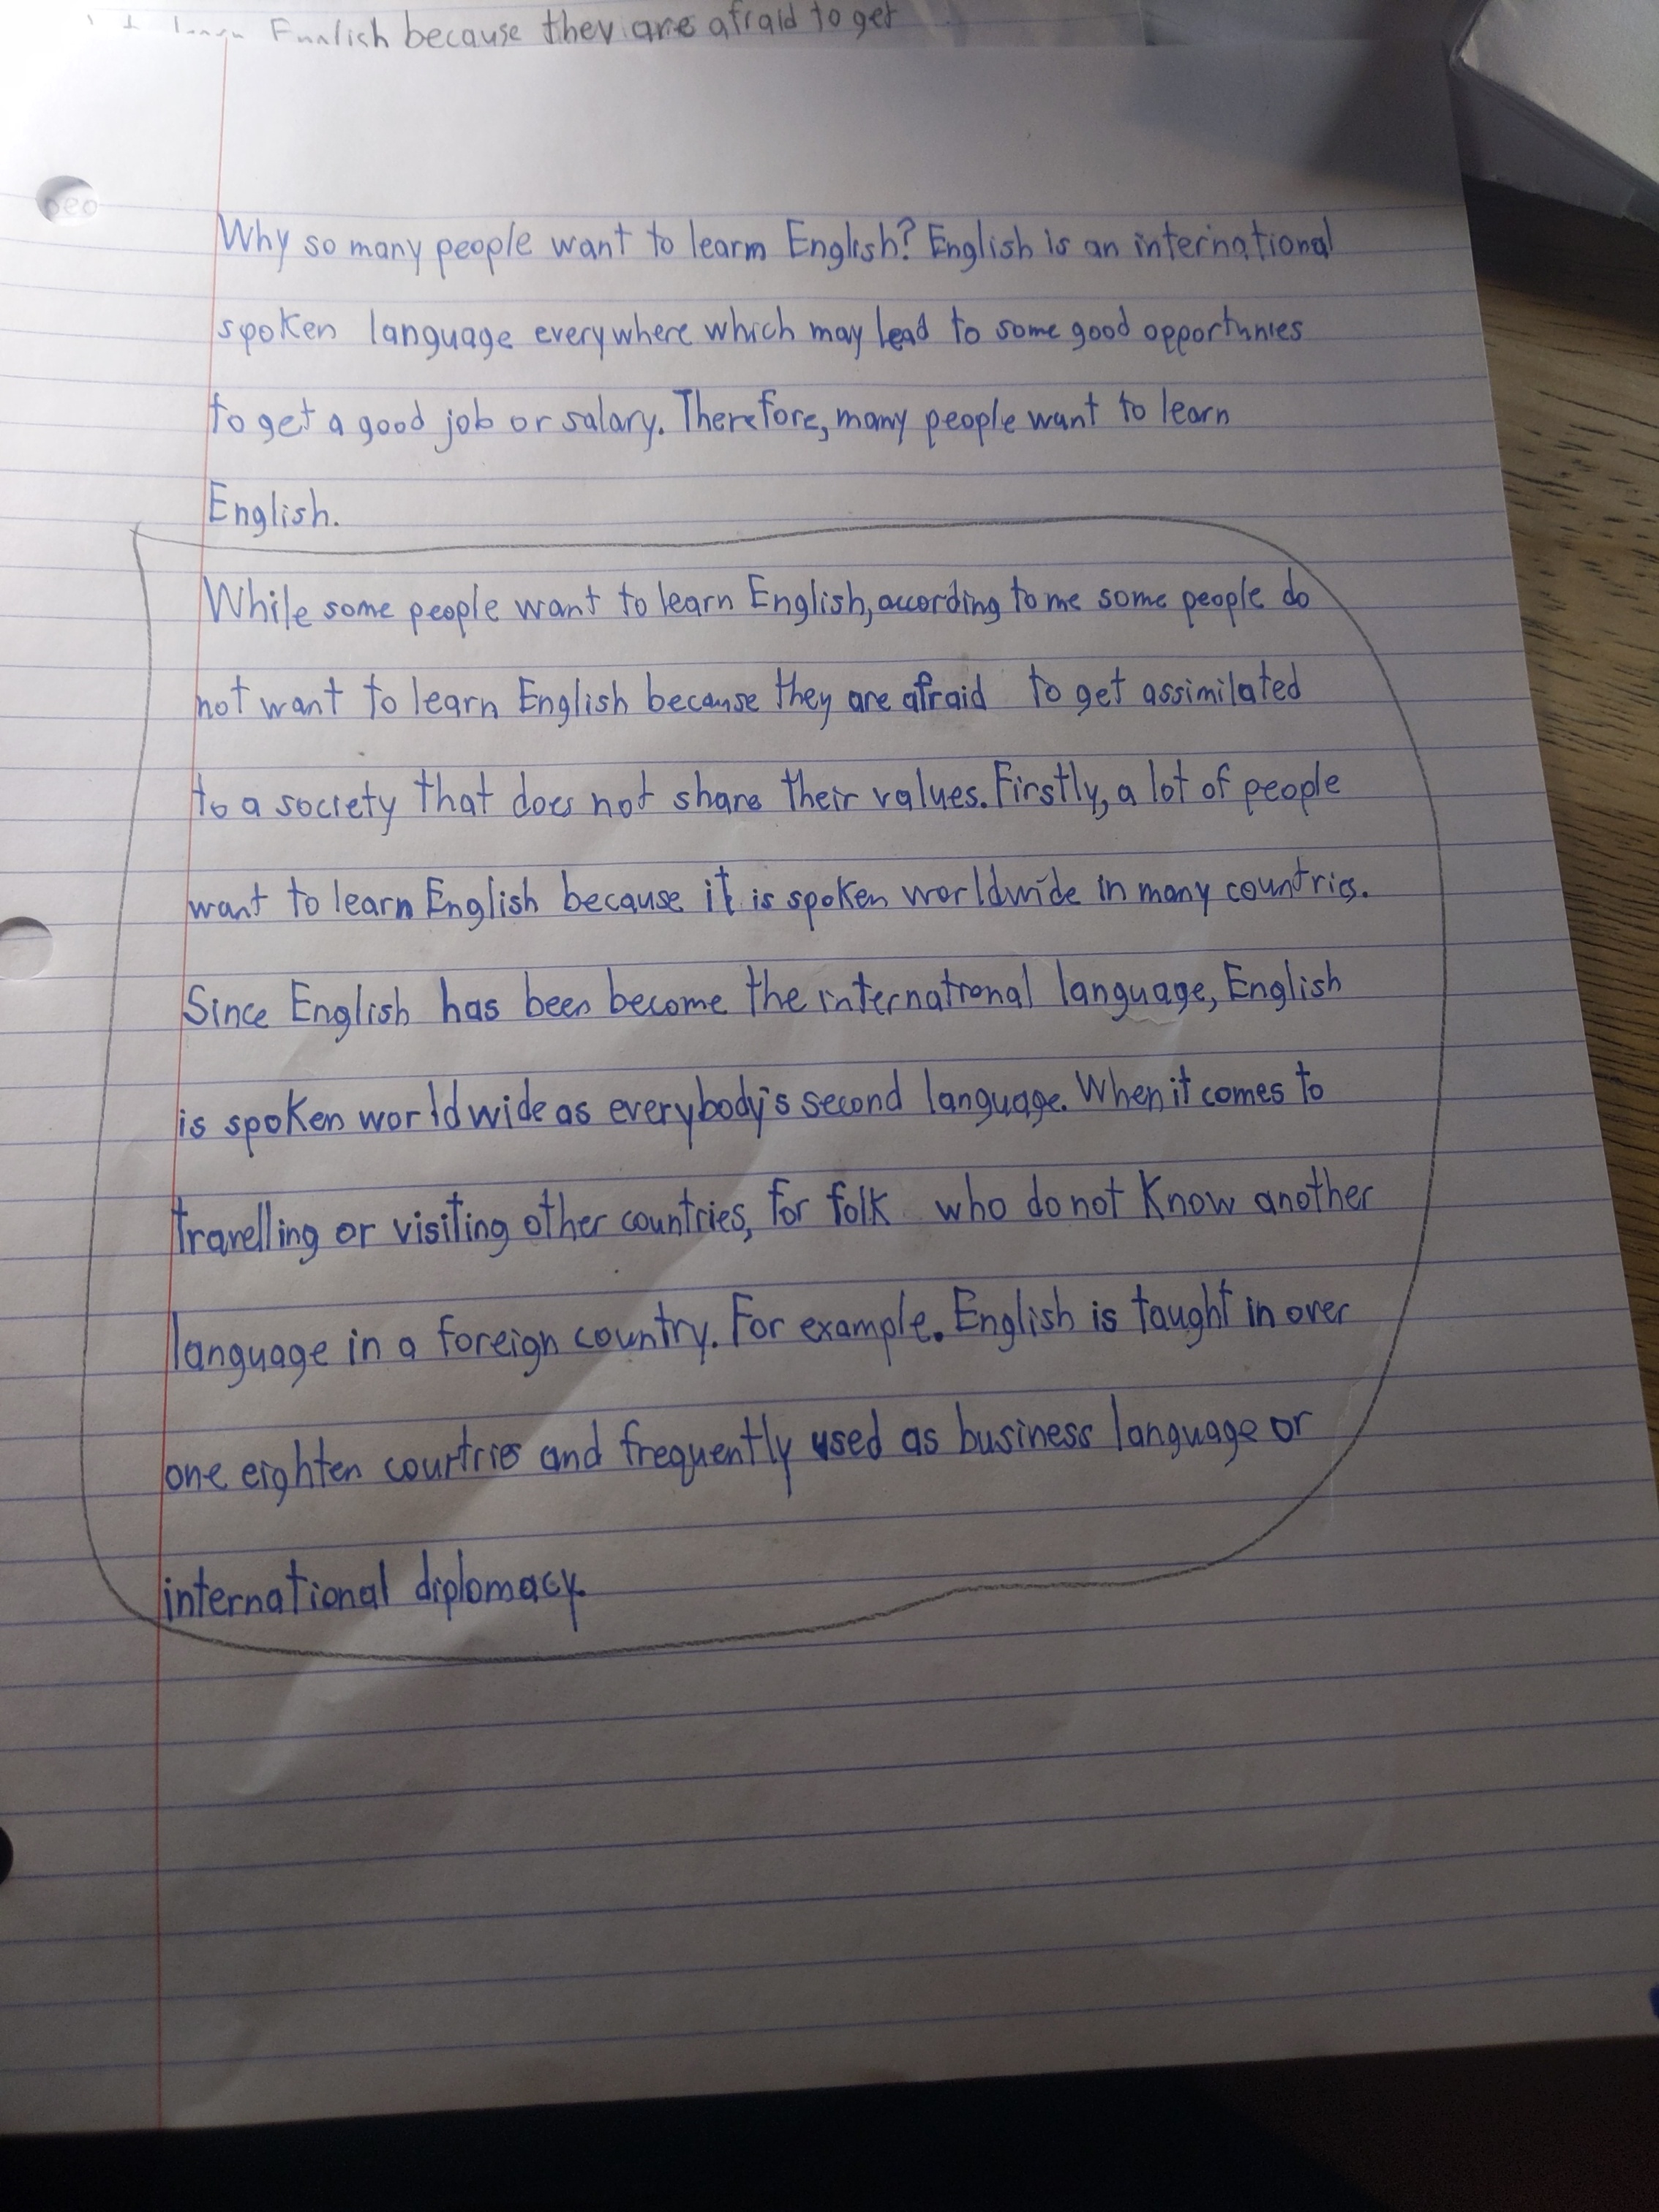 English because they are afraid to get
peo
Why so many people want to learm English? English is an international
spoken language everywhere which may lead to some good opportunies
to get a good job or salary. Therefore, many people want to learn
English.
While some people want to learn English, according to me some people do
not want to learn English because they are afraid to get assimilated
to a society that does not share their values. Firstly, a lot of people
want to learn English because it is spoken worldwide in many countries.
Since English has been become the international language, English
is spoken worldwide as everybody's second language. When it comes to
travelling or visiting other countries, for folk who do not know another
language in a foreign country. For example. English is taught in over
one eighten courtries and frequently used as business language or
international diplomacy.